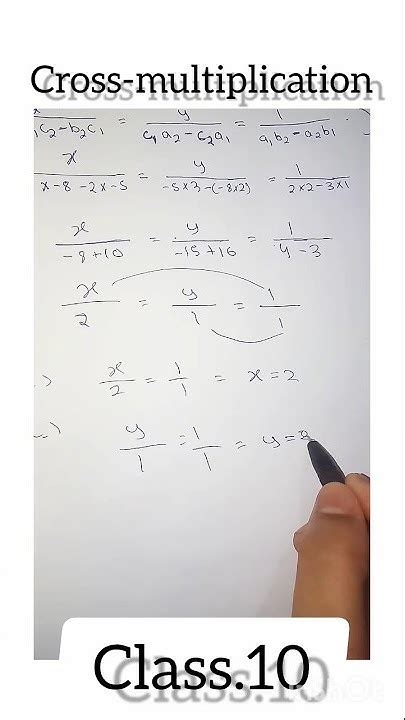 Cross-multiplication
x/₁c₂-b₂c₁ = y/c₁a₂-c₂a₁ = 1/a₁b₂-a₂b₁
x/x-8-2x-5 = y/-5x3-(-8x2) = 1/2x2-3x1
x/-8+10 = y/-15+16 = 1/4-3
x/2 = y/1 = 1/1
) x/2 = 1/1 = x=2
) y/1 = 1/1 = y=
Class.10